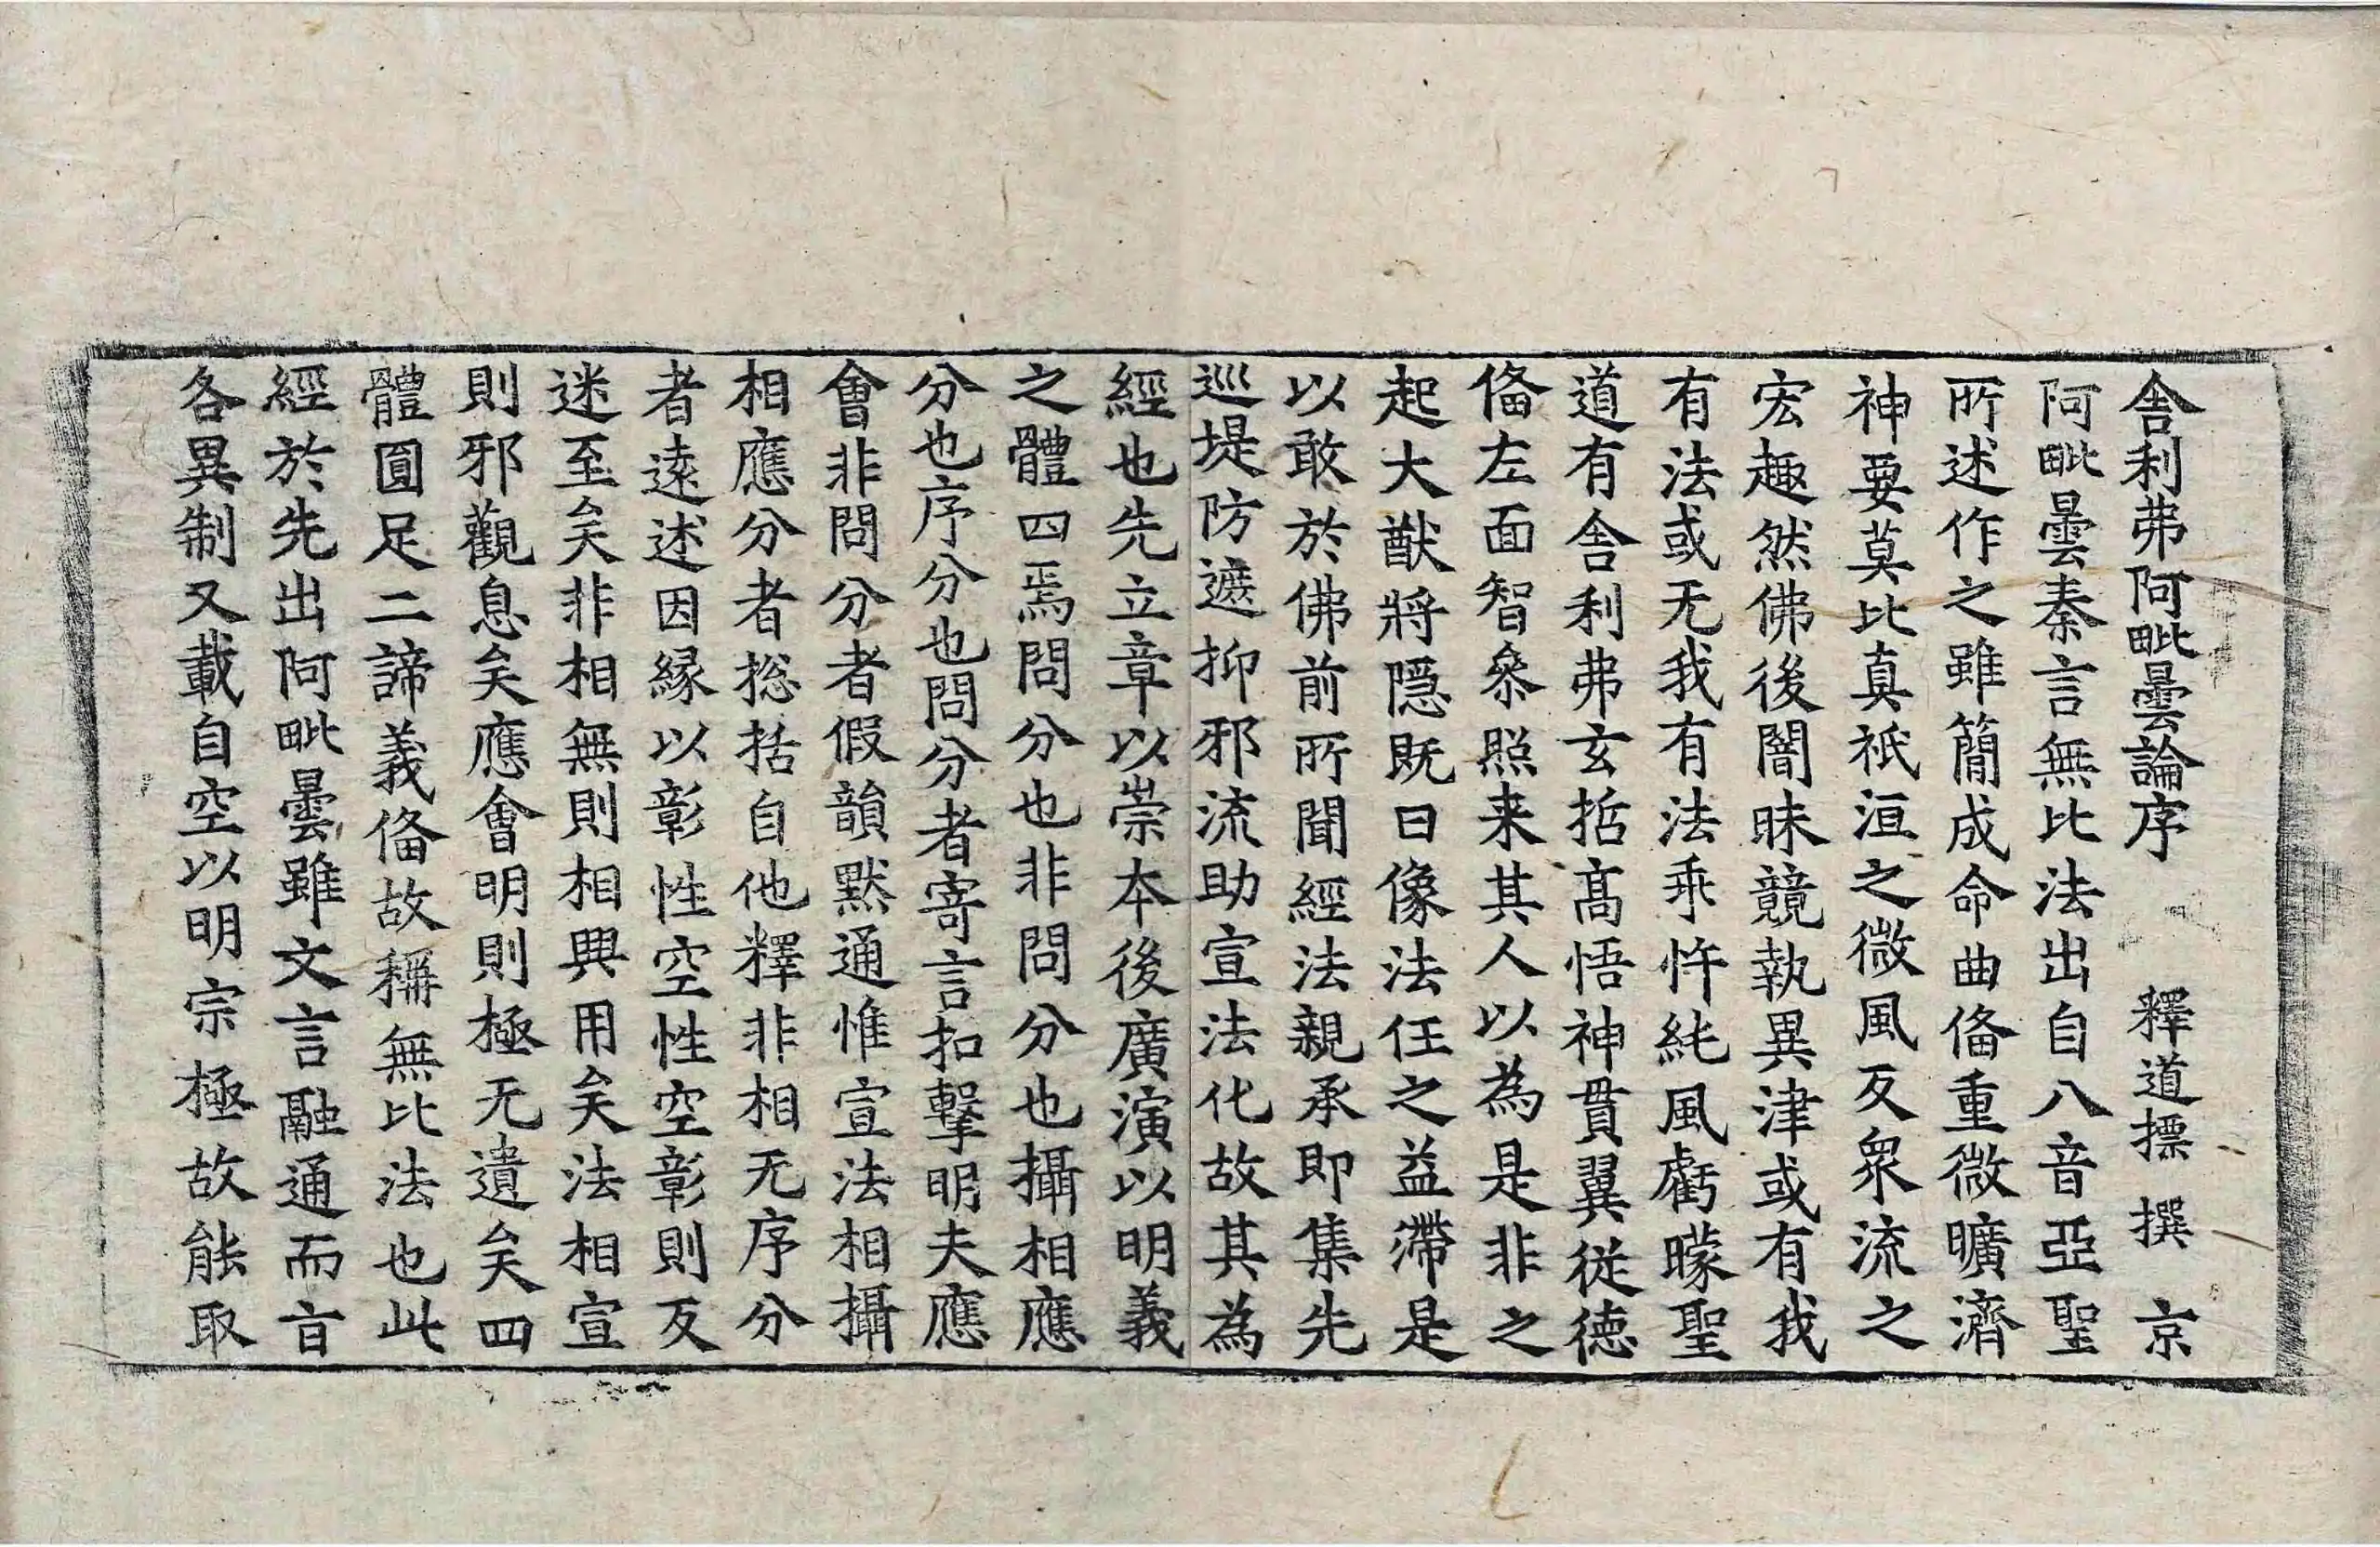 舎利弗阿毗曇論序　釋道摽　撰　京
阿毗曇秦言無比法出自八音亞聖
所述作之雖簡成命曲俻重微曠濟
神要莫比真祇洹之微風反衆流之
宏趣然佛後闇昧競執異津或有我
有法或无我有法乖忤純風虧曚聖
道有舎利弗玄哲髙悟神貫翼從德
俻左面智叅照来其人以為是非之
起大猷將隱既曰像法任之益滯是
以敢於佛前所聞經法親承即集先
巡堤防遮抑邪流助宣法化故其為
經也先立章以崇本後廣演以明義
之體四焉問分也非問分也攝相應
分也序分也問分者寄言扣擊明夫應
會非問分者假韻默通惟宣法相攝
相應分者揔括自他釋非相无序分
者遠述因緣以彰性空性空彰則反
迷至矣非相無則相興用矣法相宣
則邪觀息矣應會明則極无遺矣四
體圓足二諦義俻故稱無比法也此
經於先出阿毗曇雖文言融通而旨
各異制又載自空以明宗極故能取